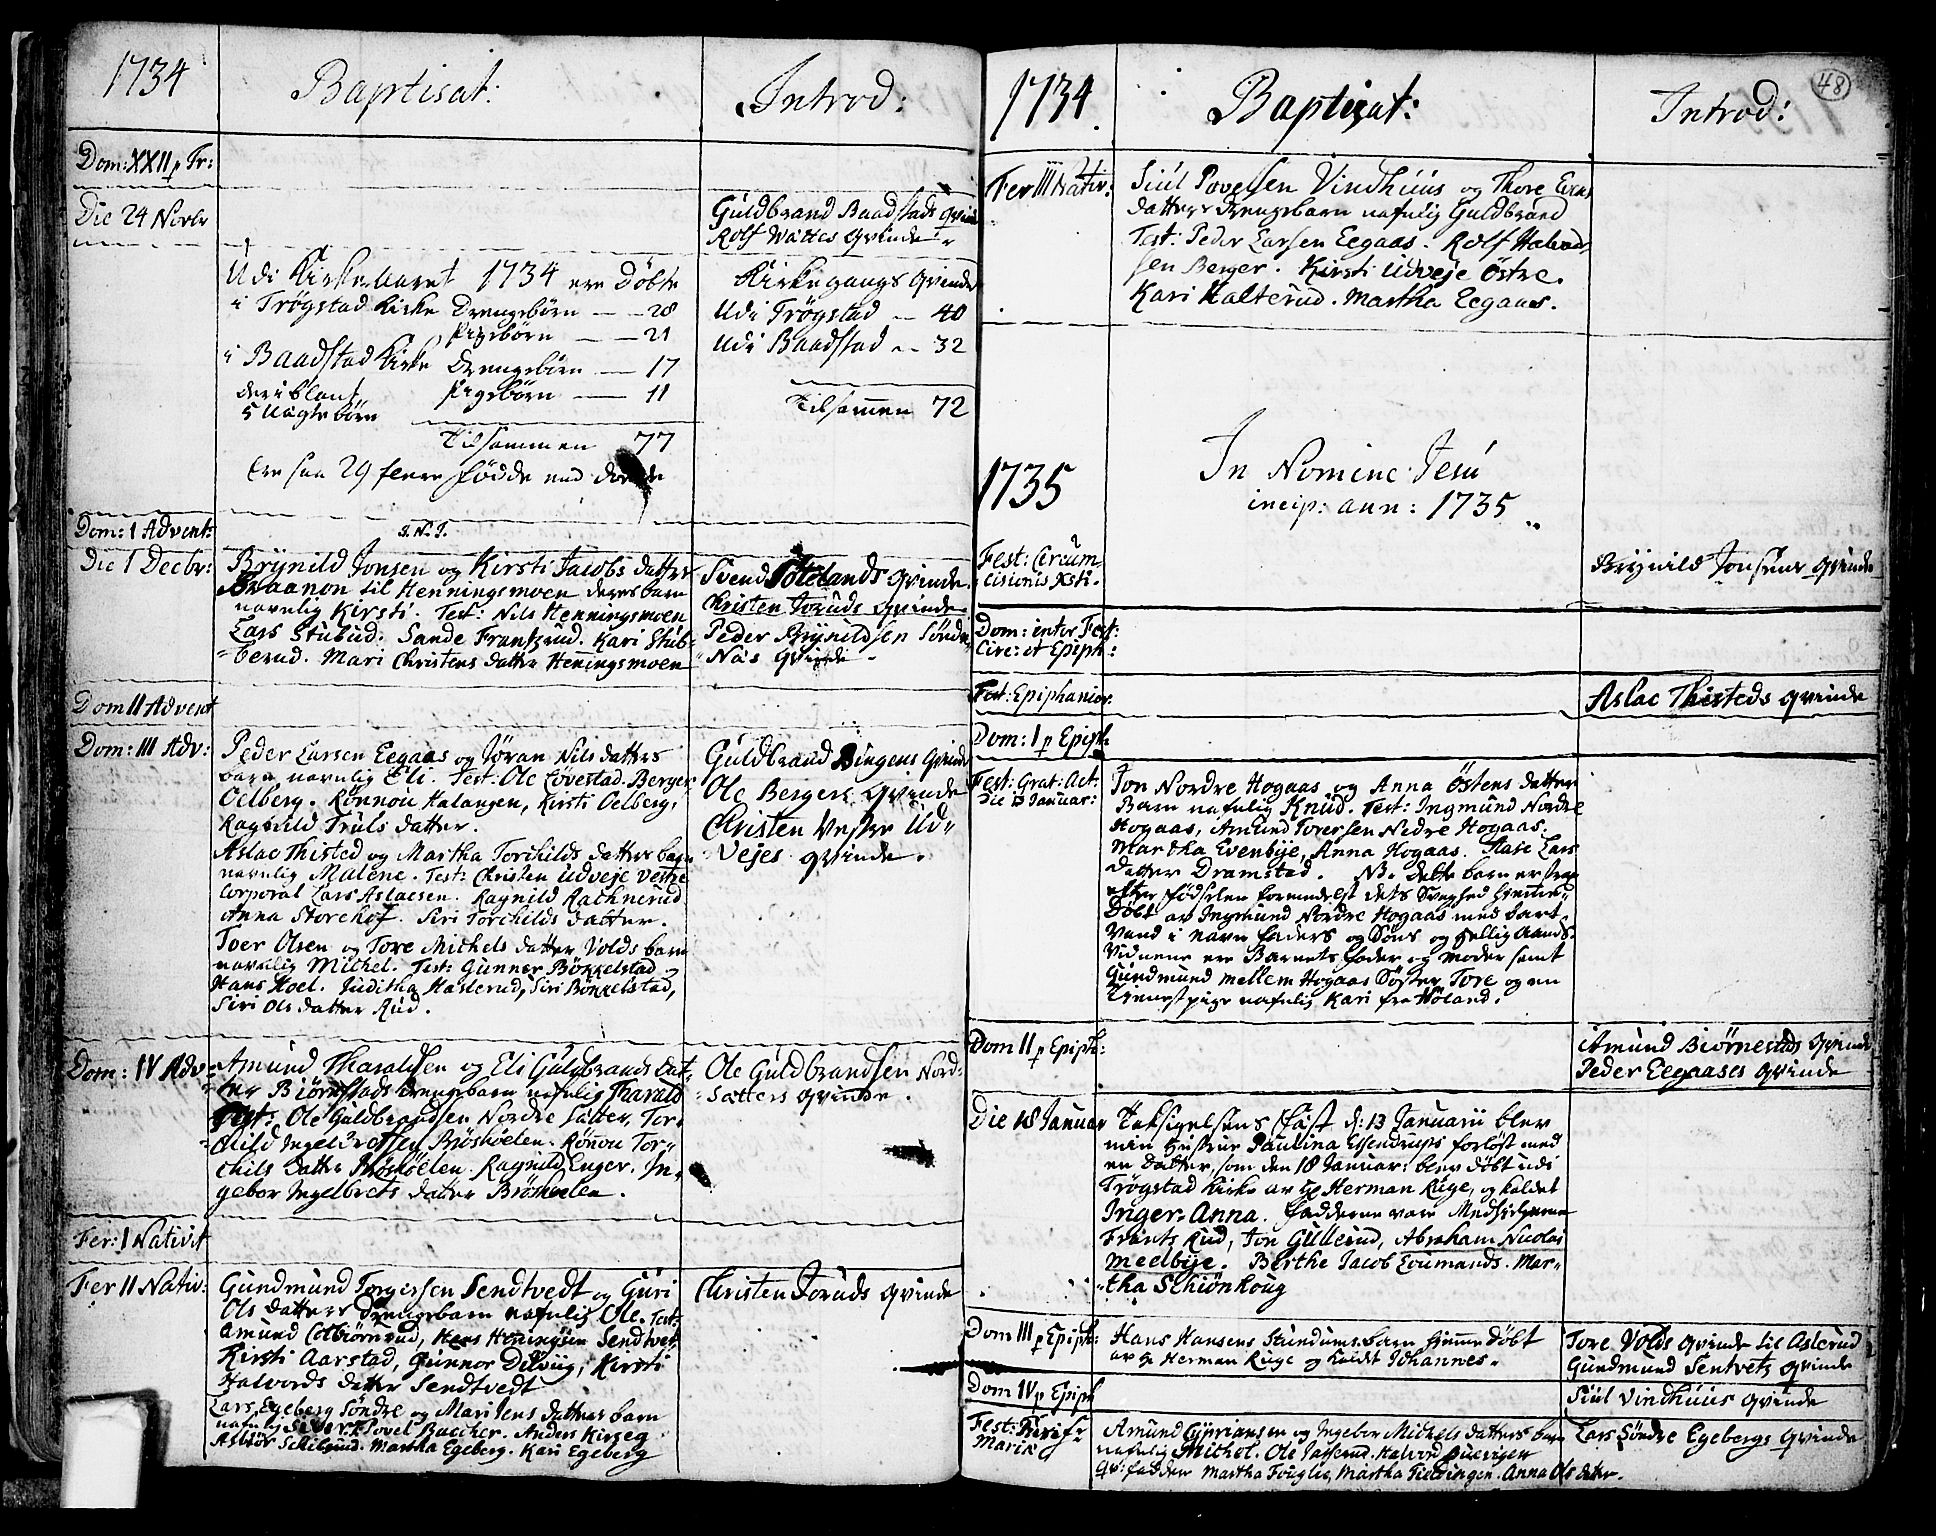 1734
Baptisat:
Introd:
Dom: XXII p Tr:
Die 24 Novbr
Guldbrand Baadstads qvinde
Rolf Wattes qvinde
Udi Kirkeaaret 1734 ere Døbte
i Trøgstad Kirke Drengebørn — 28
Pigebørn — 21
i Baadstad Kirke Drengebørn — 17
deriblant Pigebørn — 11
5 Uægte børn
Tilsammen 77
Ere saa 29 flere fødde end døde
Kirkegangs qvinder
Udi Trøgstad — 40
Udi Baadstad — 32
Tilsammen 72
Dom: 1 Advent:
J. N. J.
Die 1 Decbr:
Brÿnild Jonsen og Kirsti Jacobs datter
Braanon til Henningsmoen deres barn
navnlig Kirsti. Test: Nils Henningsmoen
Lars Stubud. Sande Frantzrud. Kari Stub-
berud. Mari Christens datter Henningsmoen
Svend Sotelands qvinde
Christen Joruds qvinde
Peder Brÿnildsen Søndre
Næs qvinde
Dom II Advent
Dom: III Adv:
Peder Larsen Eegaas og Jøran Nils datters
barn navnlig Eli. Test: Ole Lovestad. Berger
Oelberg. Rønnou Halangen, Kirsti Oelberg,
Ragnild Truls datter.
Aslac Thisted og Martha Torchilds datters barn
navnlig Malene. Test: Christen Udveje Vestre
Corporal Lars Aslacsen. Ragnild Rachnerud
Anna Storehof. Siri Torchilds datter.
Toer Olsen og Tore Michels datter Volds barn
navnlig Michel. Test: Gunner Bøkkelstad
Hans Hoel. Juditha Haslerud, Siri Bøkkelstad,
Siri Ols datter Rud.
Guldbrand Bingens qvinde
Ole Bergers qvinde
Christen Vestre Ud-
Vejes qvinde.
Dom: IV Adv:
Amund Tharaldsen og Eli Guldbrands dat-
ter Biørnstads drengebarn nafnlig Tharald
Test: Ole Guldbrandsen Nordre Sætter, Tor-
child Ingelbretsen Brøshoelen. Rønnou Tor-
chils datter Brøshoelen. Ragnild Enger. In-
gebor Ingelbrets datter Brøshoelen.
Ole Guldbrandsen Nord-
Sætters qvinde.
Fer: I Nativit
Fer II Nativ:
Gundmund Torgersen Sendtvedt og Guri
Ols datters drengebarn nafnlig Ole. Test:
Amund Colbiørnrud, Hans Henningsen Sendtvet
Kirsti Aarstad, Gunnor Dilviig, Kirsti
Halvords datter Sendtvedt
Lars Egeberg Søndre og Mari Jens datters barn
nafnlig Siver. T. Povel Buccher. Anders Kirkeg
Martha Egeberg. Kari Egeberg
Christen Joruds qvinde
48
1734
Baptizat:
Introd:
Fer III Nativ:
Siul Povelsen Vindhuus og Thore Evens
datters Drengebarn nafnlig Guldbrand
Test: Peder Larsen Eegaas. Rolf Halvor-
sen Berger. Kirsti Udveje Østre.
Kari Kalterud. Martha Eegaas.
1735
In Nomine Jesu
incip: ann: 1735
Fest: Circum
cisionis Xsti.
Brÿnild Jonsens qvinde
Dom: inter Fest:
Circ: et Epiph:
Fest: Epiphanior.
Aslac Thisteds qvinde
Dom: I p Epiph:
Fest: Grat: Act:
Die 13 Januar:
Jon Nordre Hogaas og Anna Østens datter
Barn nafnlig Knud. Test: Ingmund Nordre
Hogaas, Amund Torersen Nedre Hogaas.
Martha Evenbÿe, Anna Hogaas. Aase Lars
datter Dramstad. NB. dette barn er strax
efter fødselen formedelst dets Svaghed hjemme-
Døbt av Ingmund Nordre Hogaas med bart
Vand i navn faders og Søns og Hellig Aands.
Vidnene ere Barnets fader og moder samt
Gundmund mellem Hogaas Søster Tore og en
Tienest pige nafnlig Kari fra Høland.
Dom II p Epiph:
Amund Biørnestads qvinde
Peder Eegaases qvinde
Die 18 Januar
Taksigelsens fæst d: 13 Januarii blev
min Hustrue Paulina Elsendrups forløst med
en datter, som den 18 Januar: blev døbt udi
Trøgstad Kirke av Hr Herman Ruge, og kaldet
Inger-Anna. Fadderne vare
Frants Rud, Jon Gullerud, Abraham Nicolai
Meelbÿe. Birthe Jacob Loumands. Mar-
tha Schiønhoug
Dom III p Epiph:
Hans Hansens Stundums barn hjemme døbt
av Hr Herman Ruge og kaldet Johannes.
Tore Volds qvinde til Aslerud
Gundmund Sentvets qvinde
Dom IV p Epiph
Siul Vindhuus qvinde
Fest: Purif:
Mariæ
Amund Cÿpriansen og Ingebor Michels datters barn
nafnlig Michel. Ole Jatterud. Halvord
qv: fadder Martha Fouglie, Martha Fieldingen. Anna Ols datter.
Lars Søndre Egebergs qvinde